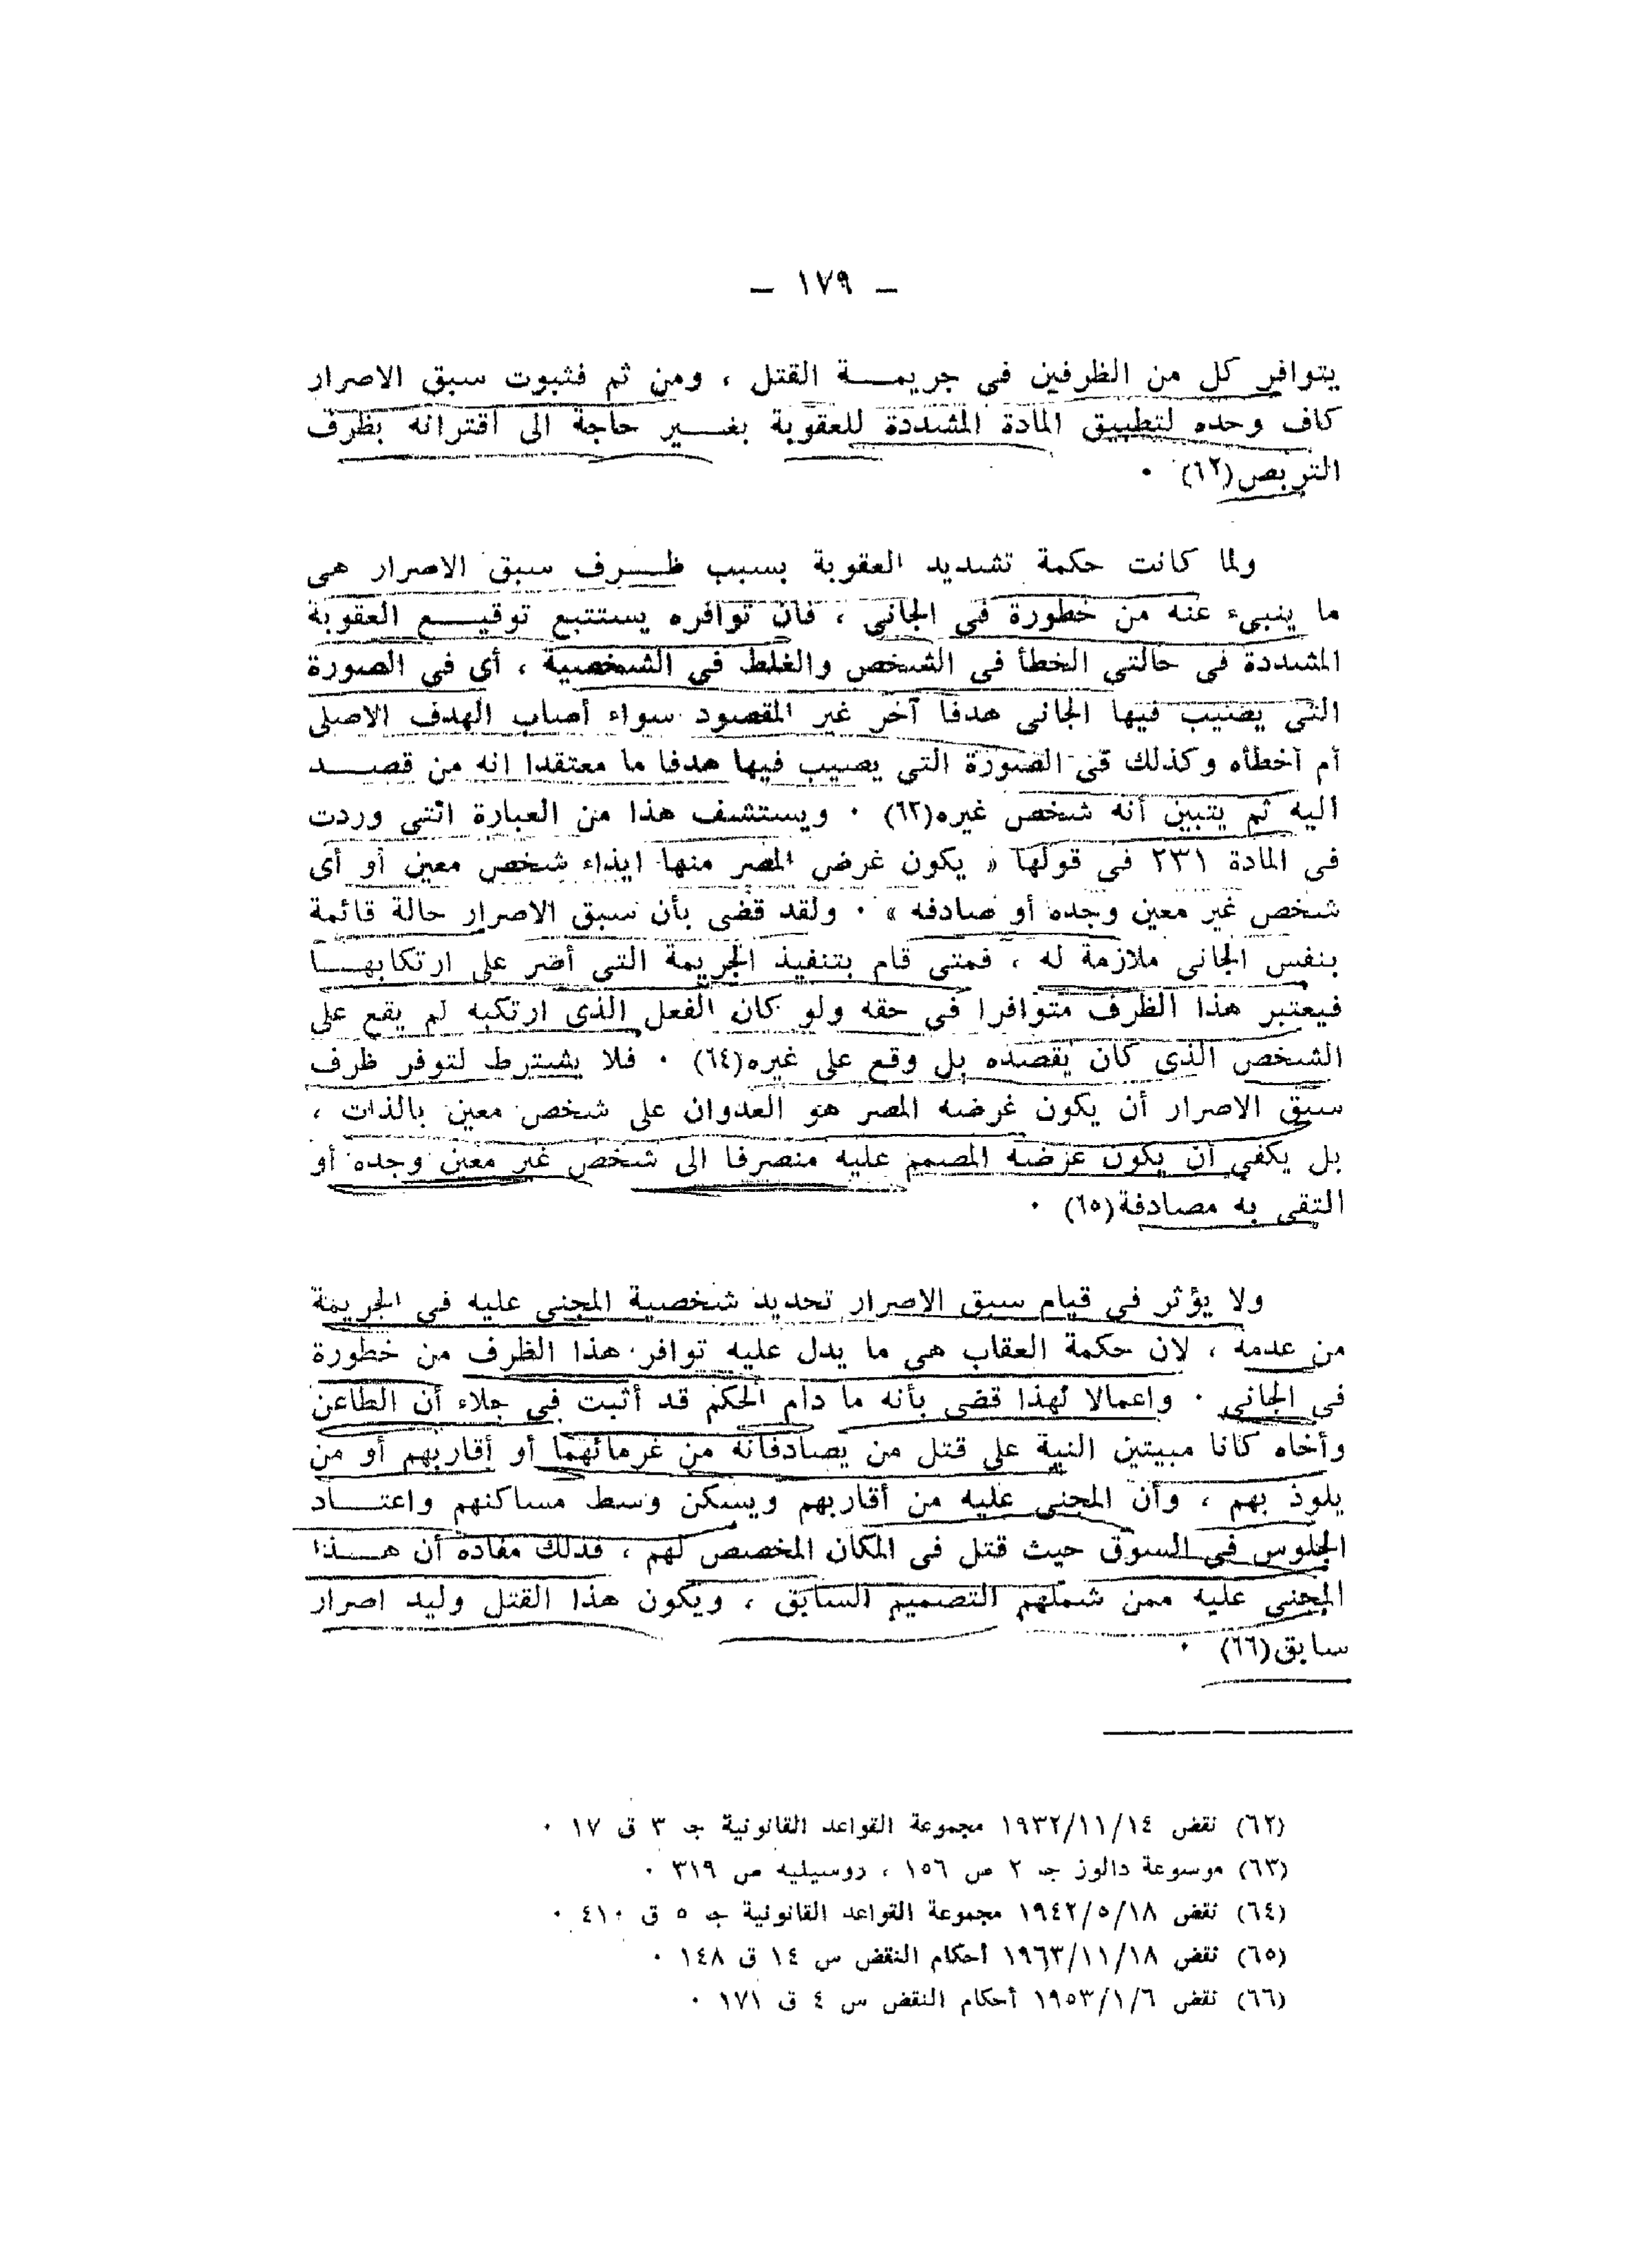 ــ ١٧٩ ــ
يتوافر كل من الظرفين فى جريمــة القتل ، ومن ثم فثبوت سبق الاصرار
كاف وحده لتطبيق المادة المشددة للعقوبة بغــير حاجة الى اقترانه بظرف
التربص(٦٢) ٠
ولما كانت حكمة تشديد العقوبة بسبب ظــرف سبق الاصرار هى
ما ينبىء عنه من خطورة فى الجانى ، فان توافره يستتبع توقيــع العقوبة
المشددة فى حالتى الخطأ فى الشخص والغلط فى الشخصية ، أى فى الصورة
التى يصيب فيها الجانى هدفا آخر غير المقصود سواء أصاب الهدف الاصلى
أم أخطأه وكذلك فى الصورة التى يصيب فيها هدفا ما معتقدا انه من قصــد
اليه ثم يتبين أنه شخص غيره(٦٣) ٠ ويستشف هذا من العبارة التى وردت
فى المادة ٢٣١ فى قولها « يكون غرض المصر منها ايذاء شخص معين أو أى
شخص غير معين وجده أو صادفه » ٠ ولقد قضى بأن سبق الاصرار حالة قائمة
بنفس الجانى ملازمة له ، فمتى قام بتنفيذ الجريمة التى أصر على ارتكابهــا
فيعتبر هذا الظرف متوافرا فى حقه ولو كان الفعل الذى ارتكبه لم يقع على
الشخص الذى كان يقصده بل وقع على غيره(٦٤) ٠ فلا يشترط لتوفر ظرف
سبق الاصرار أن يكون غرضه المصر هو العدوان على شخص معين بالذات ،
بل يكفى أن يكون غرضه المصمم عليه منصرفا الى شخص غير معين وجده أو
التقى به مصادفة(٦٥) ٠
ولا يؤثر فى قيام سبق الاصرار تحديد شخصية المجنى عليه فى الجريمة
من عدمه ، لان حكمة العقاب هى ما يدل عليه توافر هذا الظرف من خطورة
فى الجانى ٠ واعمالا لهذا قضى بأنه ما دام الحكم قد أثبت فى جلاء أن الطاعن
وأخاه كانا مبيتين النية على قتل من يصادفانه من غرمائهما أو أقاربهم أو من
يلوذ بهم ، وأن المجنى عليه من أقاربهم ويسكن وسط مساكنهم واعتــاد
الجلوس فى السوق حيث قتل فى المكان المخصص لهم ، فذلك مفاده أن هــذا
المجنى عليه ممن شملهم التصميم السابق ، ويكون هذا القتل وليد اصرار
سابق(٦٦) ٠
(٦٢) نقض ١٩٣٢/١١/١٤ مجموعة القواعد القانونية جـ ٣ ق ١٧ ٠
(٦٣) موسوعة دالوز جـ ٢ ص ١٥٦ ، روسيليه ص ٣١٩ ٠
(٦٤) نقض ١٩٤٢/٥/١٨ مجموعة القواعد القانونية جـ ٥ ق ٤١٠ ٠
(٦٥) نقض ١٩٦٣/١١/١٨ أحكام النقض س ١٤ ق ١٤٨ ٠
(٦٦) نقض ١٩٥٣/١/٦ أحكام النقض س ٤ ق ١٧١ ٠